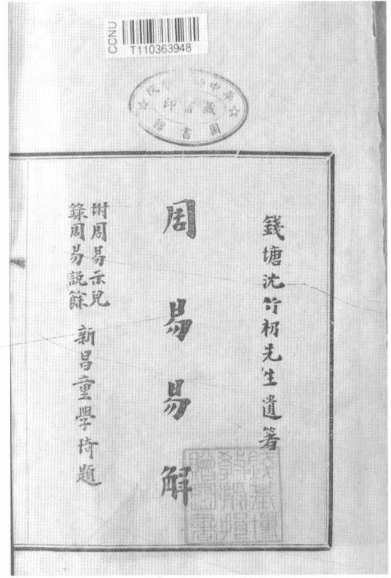 CCNU
T110363948
錢塘沈竹礽先生遺著
周易易解
附周易示兒
錄周易說餘
新昌童學琦題